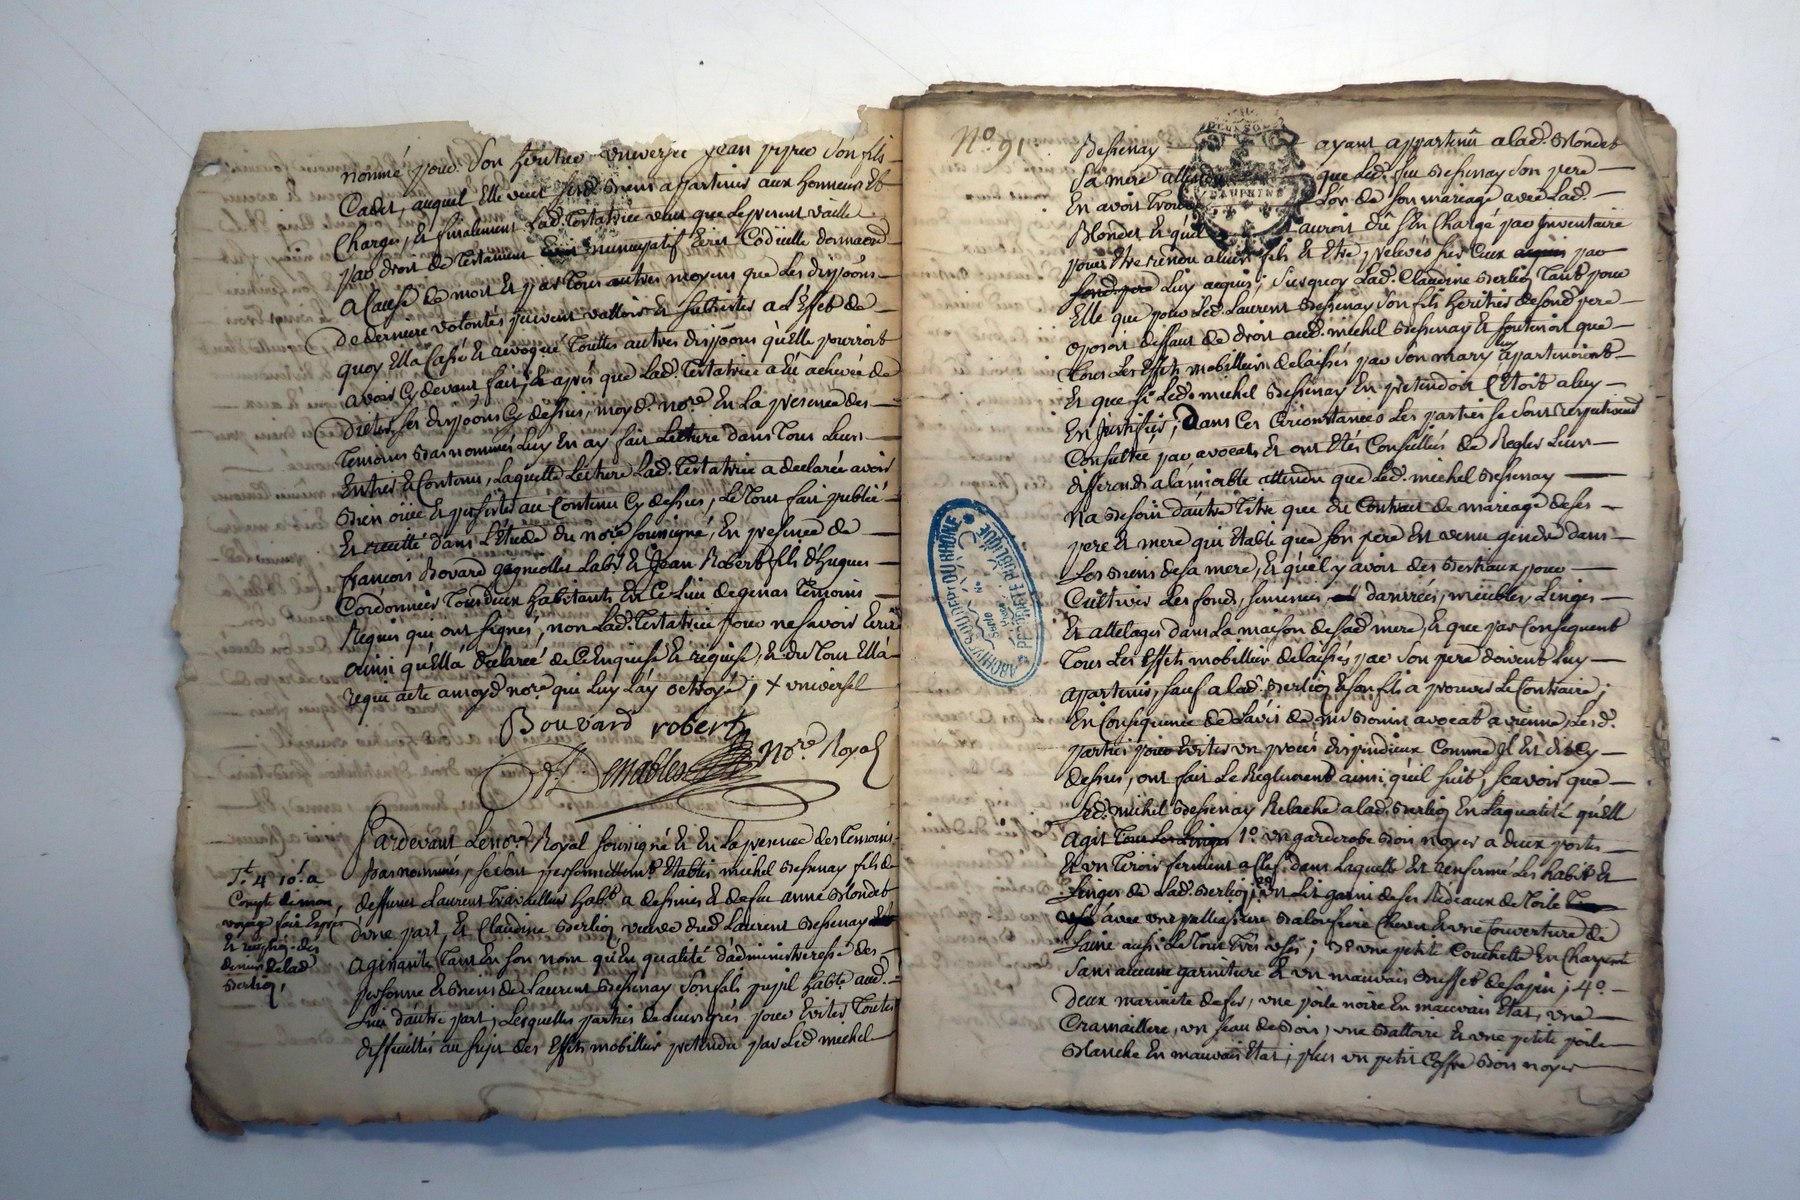 nommé pour Son héritier universel Jean pierre Son fils
Cadet, auquel Elle veut Sesd. biens appartenir aux honneurs Et
Charges, Et finalement Lad. Testatrice veut que Le present vaille
par droit de Testament nuncupatif Ecrit Codicille donnaon
a Cause de mort Et par tous autres moyens que Les disp̃ons
de derniere volontés peuvent valloir Et Subsister a L'Effet de
quoy Ella Casé Et revoqué Touttes autres disp̃ons qu'Elle pourroit
avoir Cy devant fait, Et après que Lad. Testatrice a Eté achevée de
dicter Ses disp̃ons Cy dessus, moyd. nore. En La presence des
temoins bas nommés Luy En ay fait Lecture dans Tout Leur
Entier Et Contenu, Laquelle Lecture Lad. Testatrice a declarée avoir
bien ouïe Et persister au Contenu Cy dessus, Le Tout fait publié
Et recitté dans L'Etude du nore. Soussigné, En presence de
françois Bovard Labr. Et Jean Robert fils d'hugues
Cordonnier Tous deux habitants En Ce Lieu de genas Temoins
Requis qui ont signés, non Lad. Testatrice pour ne Savoir Ecrire
ainsi qu'Ella declareé de Ce Enquise Et requise, Et du Tout Ella
requis acte amoyd nore. qui Luy L'ay octroyé; + universel
Bouvard robert
Demables Nore. Royal
Pardevant Le nore. Royal Soussigné Et En La presence des temoins
bas nommés, Se Sont personnellemt. Etablis michel bessenay fils de
deffunct Laurent travailleur habt. a Et de feu anne blondet
d'une part, Et Claudine berlioz veuve dud. Laurent bessenay
agissante Tant En Son nom qu'En qualité d'administreresse des
personne Et biens de Laurent bessenay Son fils pupil habtt. aud.
Lieu d'autre part, Lesquelles parties de Leurs grés pour Eviter Touttes
difficultes au Sujet des Effets mobillier pretendu par Led. michel
Tt. 4 10s. a
Compt de mon
voyage fait Expres
Et
denier de Lad
berlioz,
No. 91
Bessenay ayant appartenû a Lad. blondet
Sa mere que Led. feu bessenay Son pere
En avoit trouvé Lors de Son mariage avec Lad.
Blondet Et qu'il auroit dû S'En Chargé par Inventaire
pour Etre rendu a Leur fils Et Etre prelevés Sur Ceux par
Luy acquis; Surquoy Lad. Claudine berlioz Tant pour
Elle que pour Led. Laurent Bessenay Son fils heritier de Sond. pere
oposoit deffaut de droit aud. michel bessenay Et Soutenoit que
Tous Les Effets mobilliers delaissés par Son mary luy appartenoient
Et que Si Led. michel bessenay En pretendoit C'étoit a luy
En Justifier; dans Ces Circonstances Les parties Se Sont respectivemt.
Consultée par avocats Et ont Etés Conseillés de Regler Leurs
differands a L'amiable attendu que Led. michel bessenay
n'a besoin d'autre titre que du Contract de mariage de Ses
pere Et mere qui Etablit que Son pere Est venu gendre dans
Les biens de Sa mere, Et qu'il y avoit des bestiaux pour
Cultiver Les fonds, Semences danrées, meubles, Linges
Et attelages dans La maison de Sad. mere, Et que par Consequent
Tous Les Effets mobillier delaissés par Son pere doivent Luy
appartenir, Sauf a Lad. berlioz Et Son fils a prouver Le Contraire;
En Consequence de L'avis de mr. bonin avocat a vienne, Lesd.
parties pour Eviter un procés dispendieux Comme Il Est dit Cy
dessus, ont fait Le Reglement ainsi qu'il Suit, Scavoir que
Led. michel Bessenay Relache a Lad. berlioz En La qualité qu'Elle
agit tous Les Linges 1°. un garderobe bois noyer a deux portes
Et un Tiroir fermant a Clef, dans Laquelle Est renfermé Les habits Et
Linges de Lad. berlioz; 2°. un Lit garni de Ses Rideaux de toile
avec une paillassiere baloufiere Chevet Et une Couverture de
Laine aussi Le Tout Très usés; 3°. une petite Couchette En Charpente
Sans aucune garniture Et un mauvais buffet de Sapin; 4°.
Deux marmite de fer, une poile noire En mauvais Etat, une
Cramaillere, un Seau de bois, une Et une petite poile
Blanche En mauvais Etat; plus un petit Coffre bois noyer
ARCHIVES DU DEP. DU RHONE
PROPRIÉTÉ PUBLIQUE